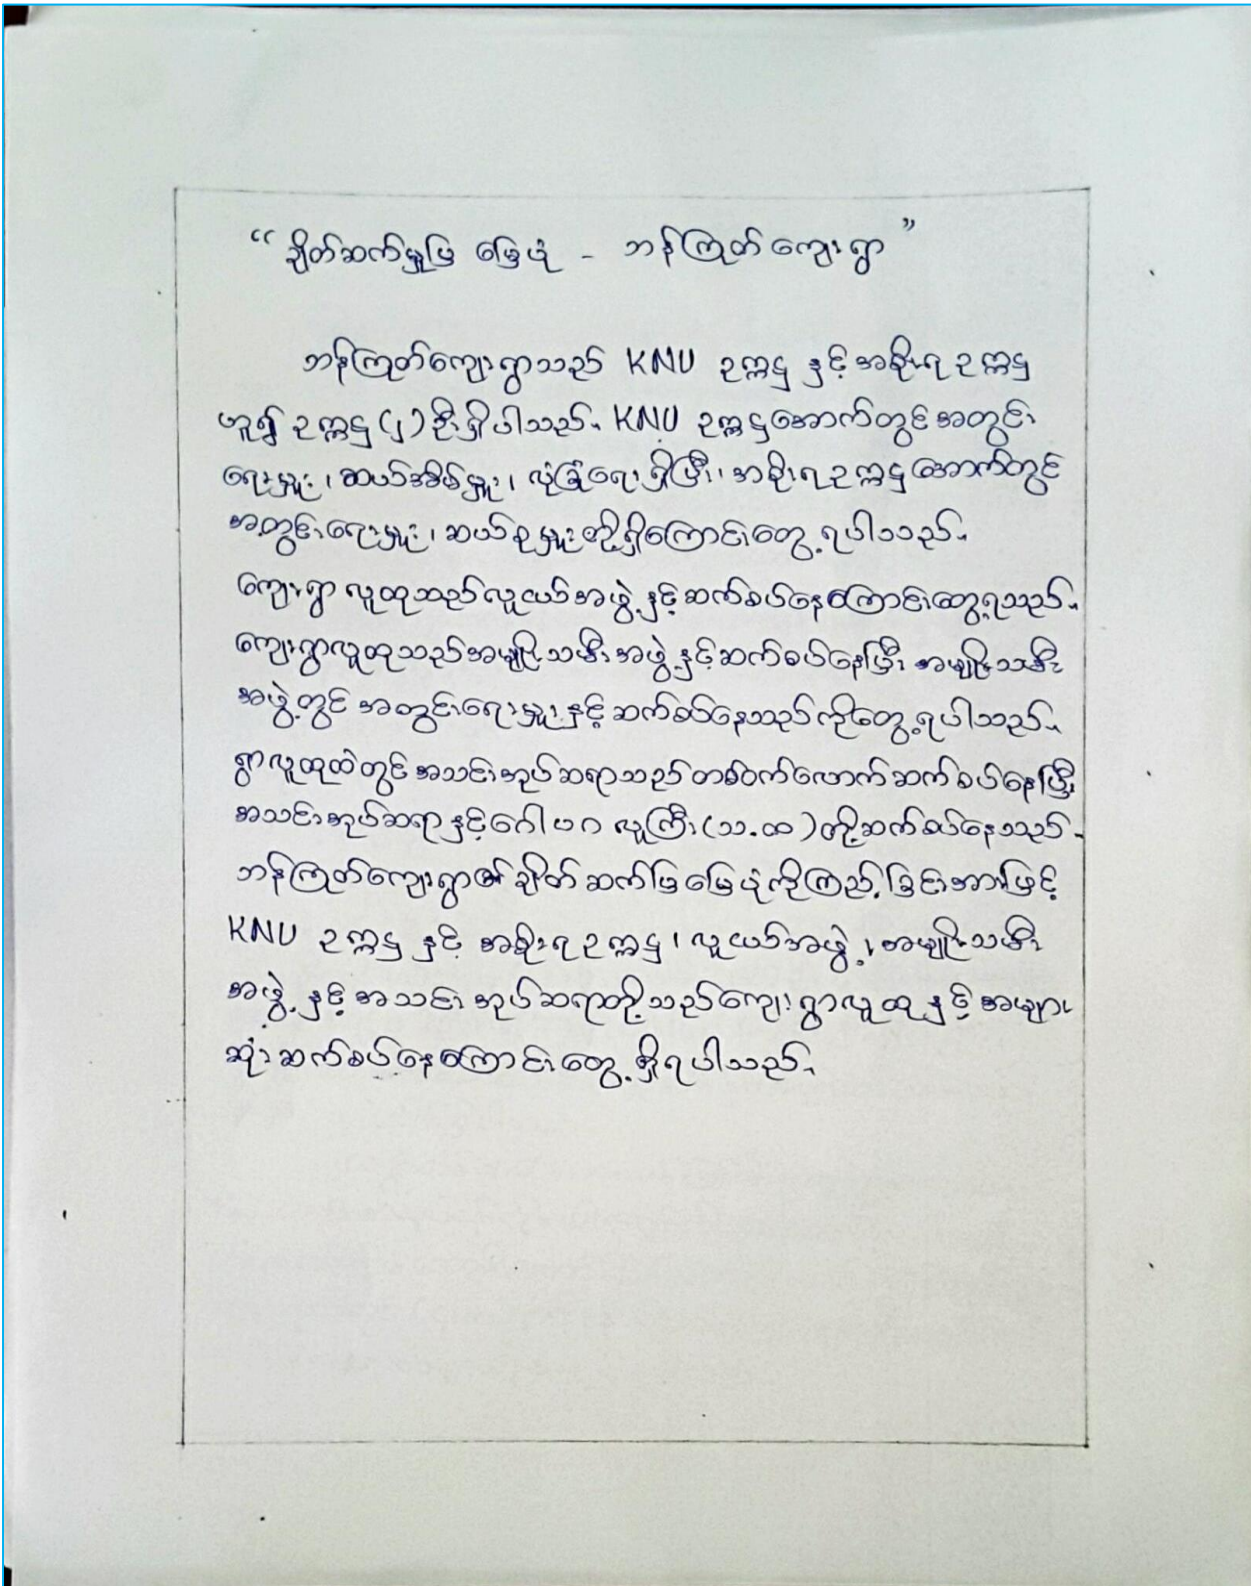 “ ချိတ်ဆက်မှုပြ မြေပုံ - ဘန်ကြုတ်ကျေးရွာ ”
ဘန်ကြုတ်ကျေးရွာသည် KNU ဥက္ကဋ္ဌ နှင့် အစိုးရ ဥက္ကဋ္ဌ
ဟူ၍ ဥက္ကဋ္ဌ (၂) ဦးရှိပါသည်။ KNU ဥက္ကဋ္ဌအောက်တွင် အတွင်း
ရေးမှူး ၊ ဆယ်အိမ်မှူး ၊ လုံခြုံရေး ရှိပြီး ၊ အစိုးရ ဥက္ကဋ္ဌအောက်တွင်
အတွင်းရေးမှူး ၊ ဆယ်စုမှူးတို့ရှိကြောင်းတွေ့ရပါသည်။
ကျေးရွာ လူထုသည်လူငယ်အဖွဲ့နှင့် ဆက်စပ်နေကြောင်းတွေ့ရသည်။
ကျေးရွာလူထုသည်အမျိုးသမီးအဖွဲ့နှင့်ဆက်စပ်နေပြီး အမျိုးသမီး
အဖွဲ့တွင် အတွင်းရေးမှူးနှင့် ဆက်စပ်နေသည်ကိုတွေ့ရပါသည်။
ရွာလူထုထဲတွင် အသင်းအုပ်ဆရာသည်တစ်ဝက်လောက်ဆက်စပ်နေပြီး
အသင်းအုပ်ဆရာနှင့်ဂေါပဂ လူကြီး(သ.ထ)တို့ဆက်စပ်နေသည်။
ဘန်ကြုတ်ကျေးရွာ၏ ချိတ်ဆက်ပြမြေပုံကိုကြည့်ခြင်းအားဖြင့်
KNU ဥက္ကဋ္ဌ နှင့် အစိုးရ ဥက္ကဋ္ဌ ၊ လူငယ်အဖွဲ့ ၊ အမျိုးသမီး
အဖွဲ့ နှင့် အသင်း အုပ်ဆရာတို့သည်ကျေးရွာလူထုနှင့် အများ
ဆုံး ဆက်စပ်နေကြောင်းတွေ့ရှိရပါသည်။